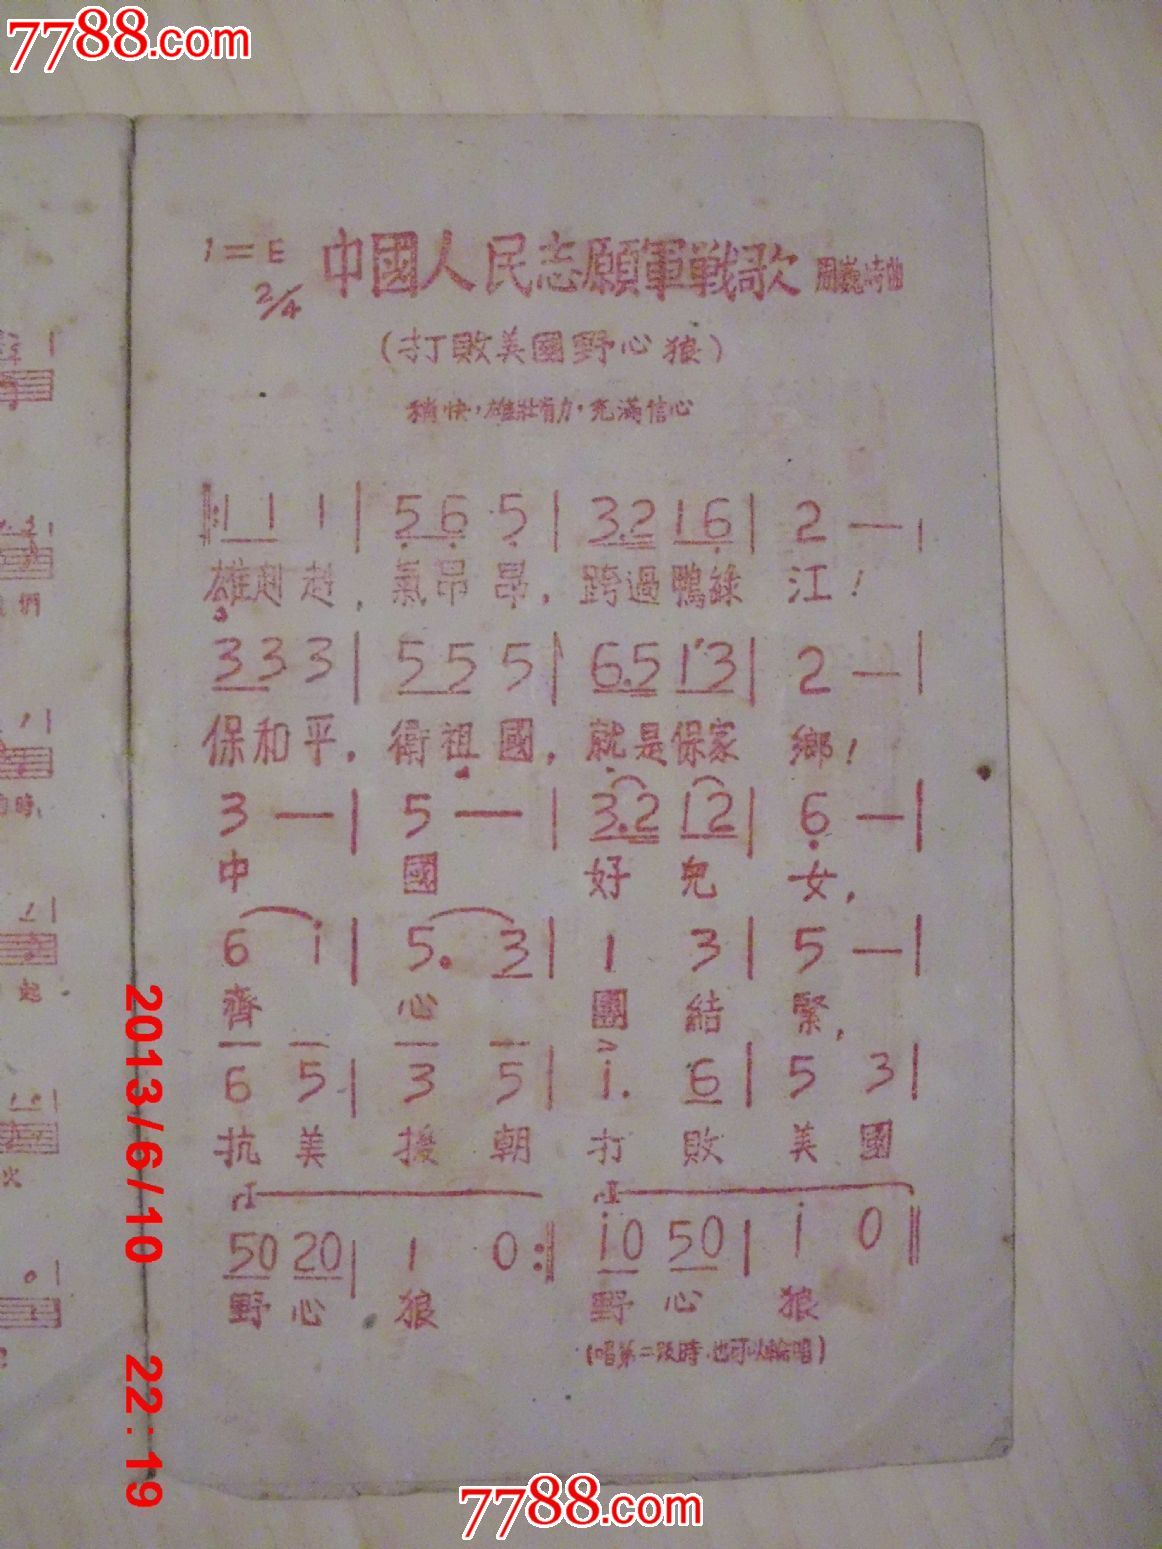 7788.com
1=E 中國人民志願軍戰歌 周巍峙曲
2/4
(打敗美國野心狼)
稍快，雄壯有力，充滿信心
‖: 1 1 1 | 5 6 5 | 3.2 1 6 | 2 — |
雄赳赳，氣昂昂，跨過鴨綠江！
3 3 3 | 5 5 5 | 6.5 1'3 | 2 — |
保和平，衛祖國，就是保家鄉！
3 — | 5 — | 3.2 1 2 | 6 — |
中國好兒女，
6 i | 5. 3 | 1 3 | 5 — |
齊心團結緊，
6 5 | 3 5 | i. 6 | 5 3 |
抗美援朝打敗美國
I II
50 20 | 1 0 :‖ i0 50 | i 0 ‖
野心狼 野心狼
(唱第二段時，也可以輪唱)
們
時，
起
火
2013/6/10 22:19
7788.com